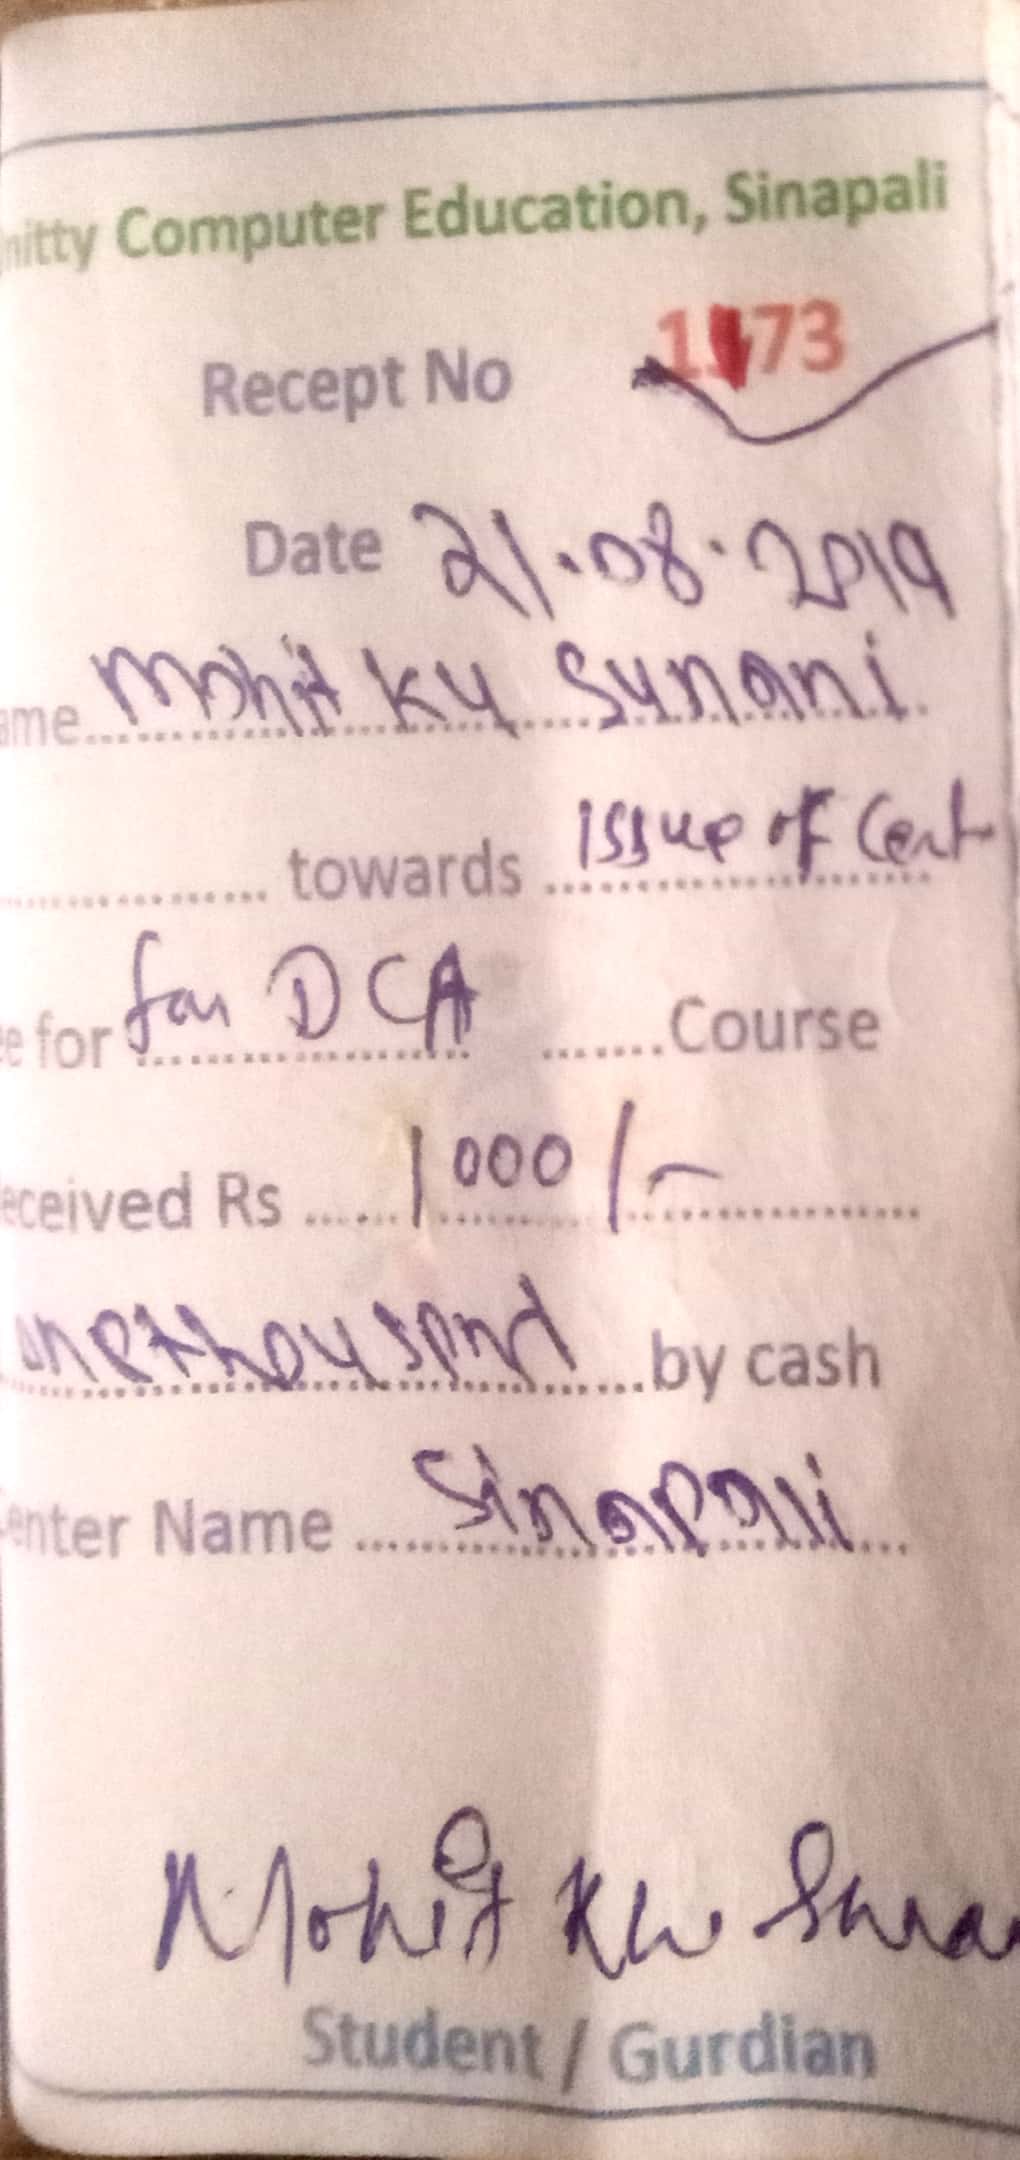 Computer Education, Sinapali
Recept No
Date 21.08.2019
Mohit Ku Sunani
towards issue of Cert
for for DCA Course
Rs 1000/-
onethousand by cash
Name Sinapali
Mohit Ku
Student / Gurdian